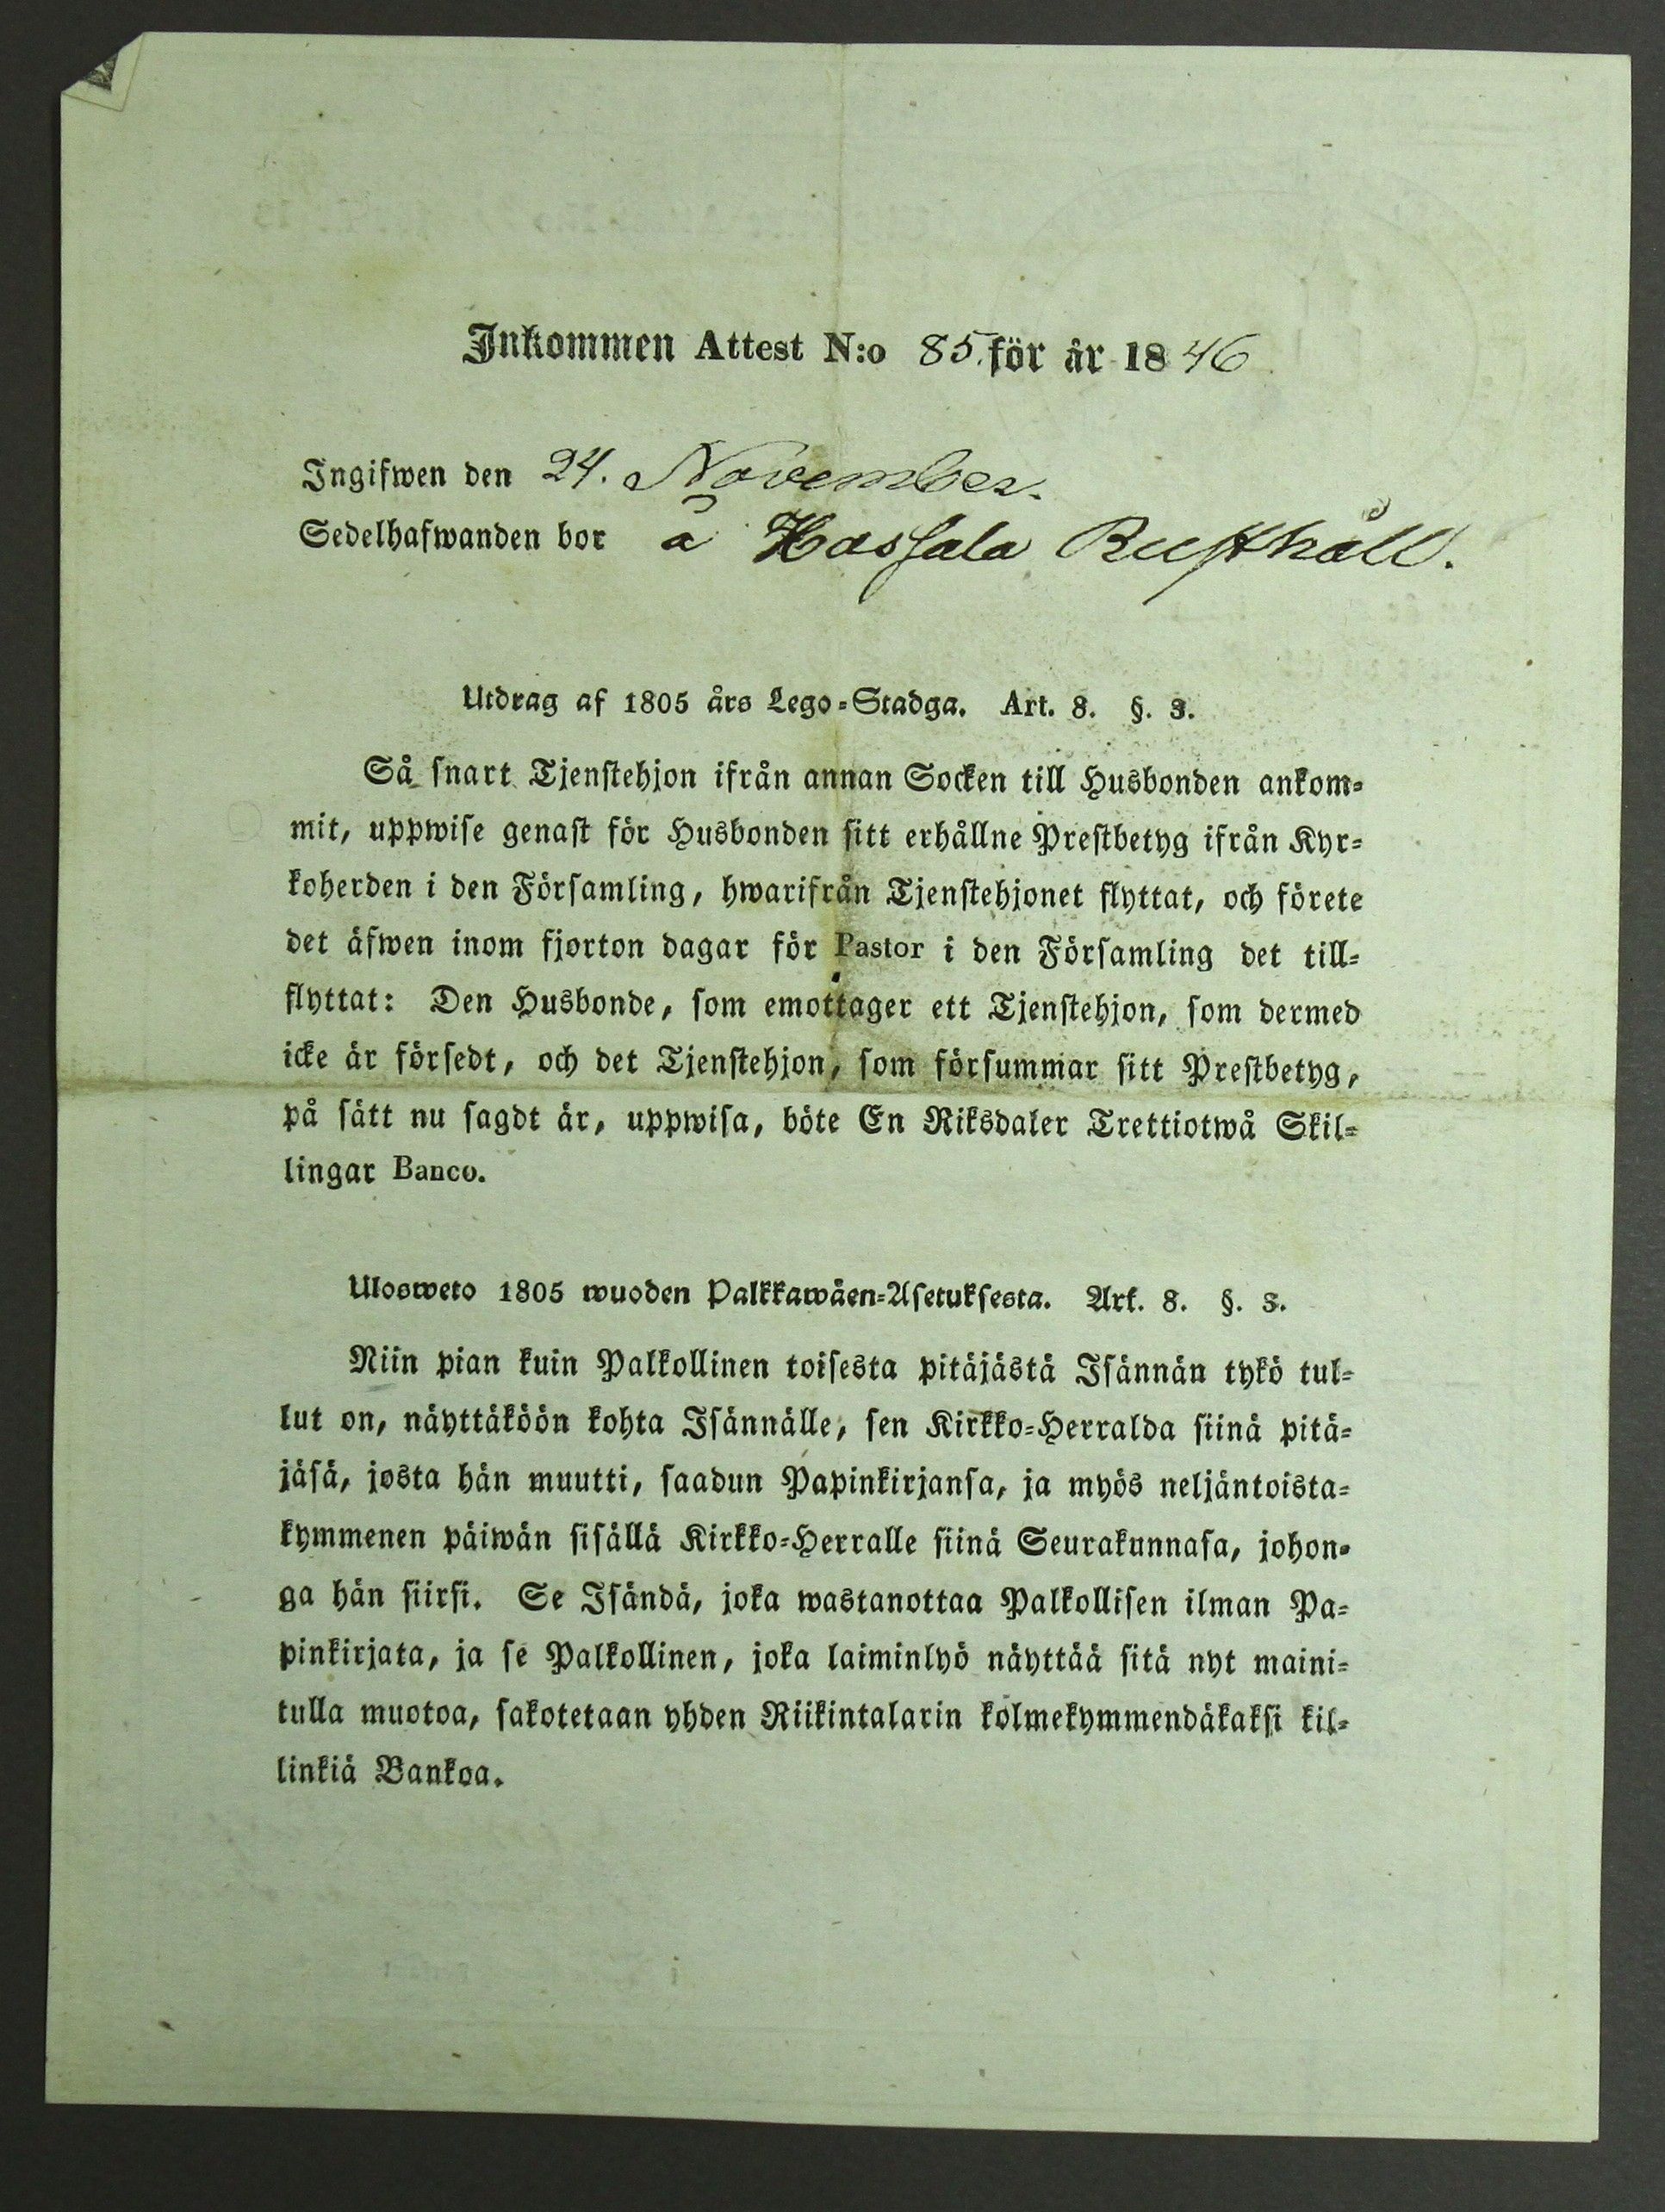 Inkommen Attest N:o 85. för år 1846
Ingifwen den 24. November.
Sedelhafwanden bor å Hassala Rusthåll.
Utdrag af 1805 års Lego-Stadga. Art. 8. §. 3.
Så snart Tjenstehjon ifrån annan Socken till Husbonden ankom-
mit, uppwise genast för Husbonden sitt erhållne Prestbetyg ifrån Kyr-
koherden i den Församling, hwarifrån Tjenstehjonet flyttat, och förete
det äfwen inom fjorton dagar för Pastor i den Församling det till-
flyttat: Den Husbonde, som emottager ett Tjenstehjon, som dermed
icke är försedt, och det Tjenstehjon, som försummar sitt Prestbetyg,
på sätt nu sagdt är, uppwisa, böte En Riksdaler Trettiotwå Skil-
lingar Banco.
Ulosweto 1805 wuoden Palkkawäen-Asetuksesta. Art. 8. §. 3.
Niin pian kuin Palkollinen toisesta pitäjästä Isännän tykö tul-
lut on, näyttäköön kohta Isännälle, sen Kirkko-Herralda siinä pitä-
jäsä, josta hän muutti, saadun Papinkirjansa, ja myös neljäntoista-
kymmenen päiwän sisällä Kirkko-Herralle siinä Seurakunnasa, johon-
ga hän siirsi. Se Isändä, joka wastanottaa Palkollisen ilman Pa-
pinkirjata, ja se Palkollinen, joka laiminlyö näyttää sitä nyt maini-
tulla muotoa, sakotetaan yhden Riikintalarin kolmekymmendäkaksi kil-
linkiä Bankoa.